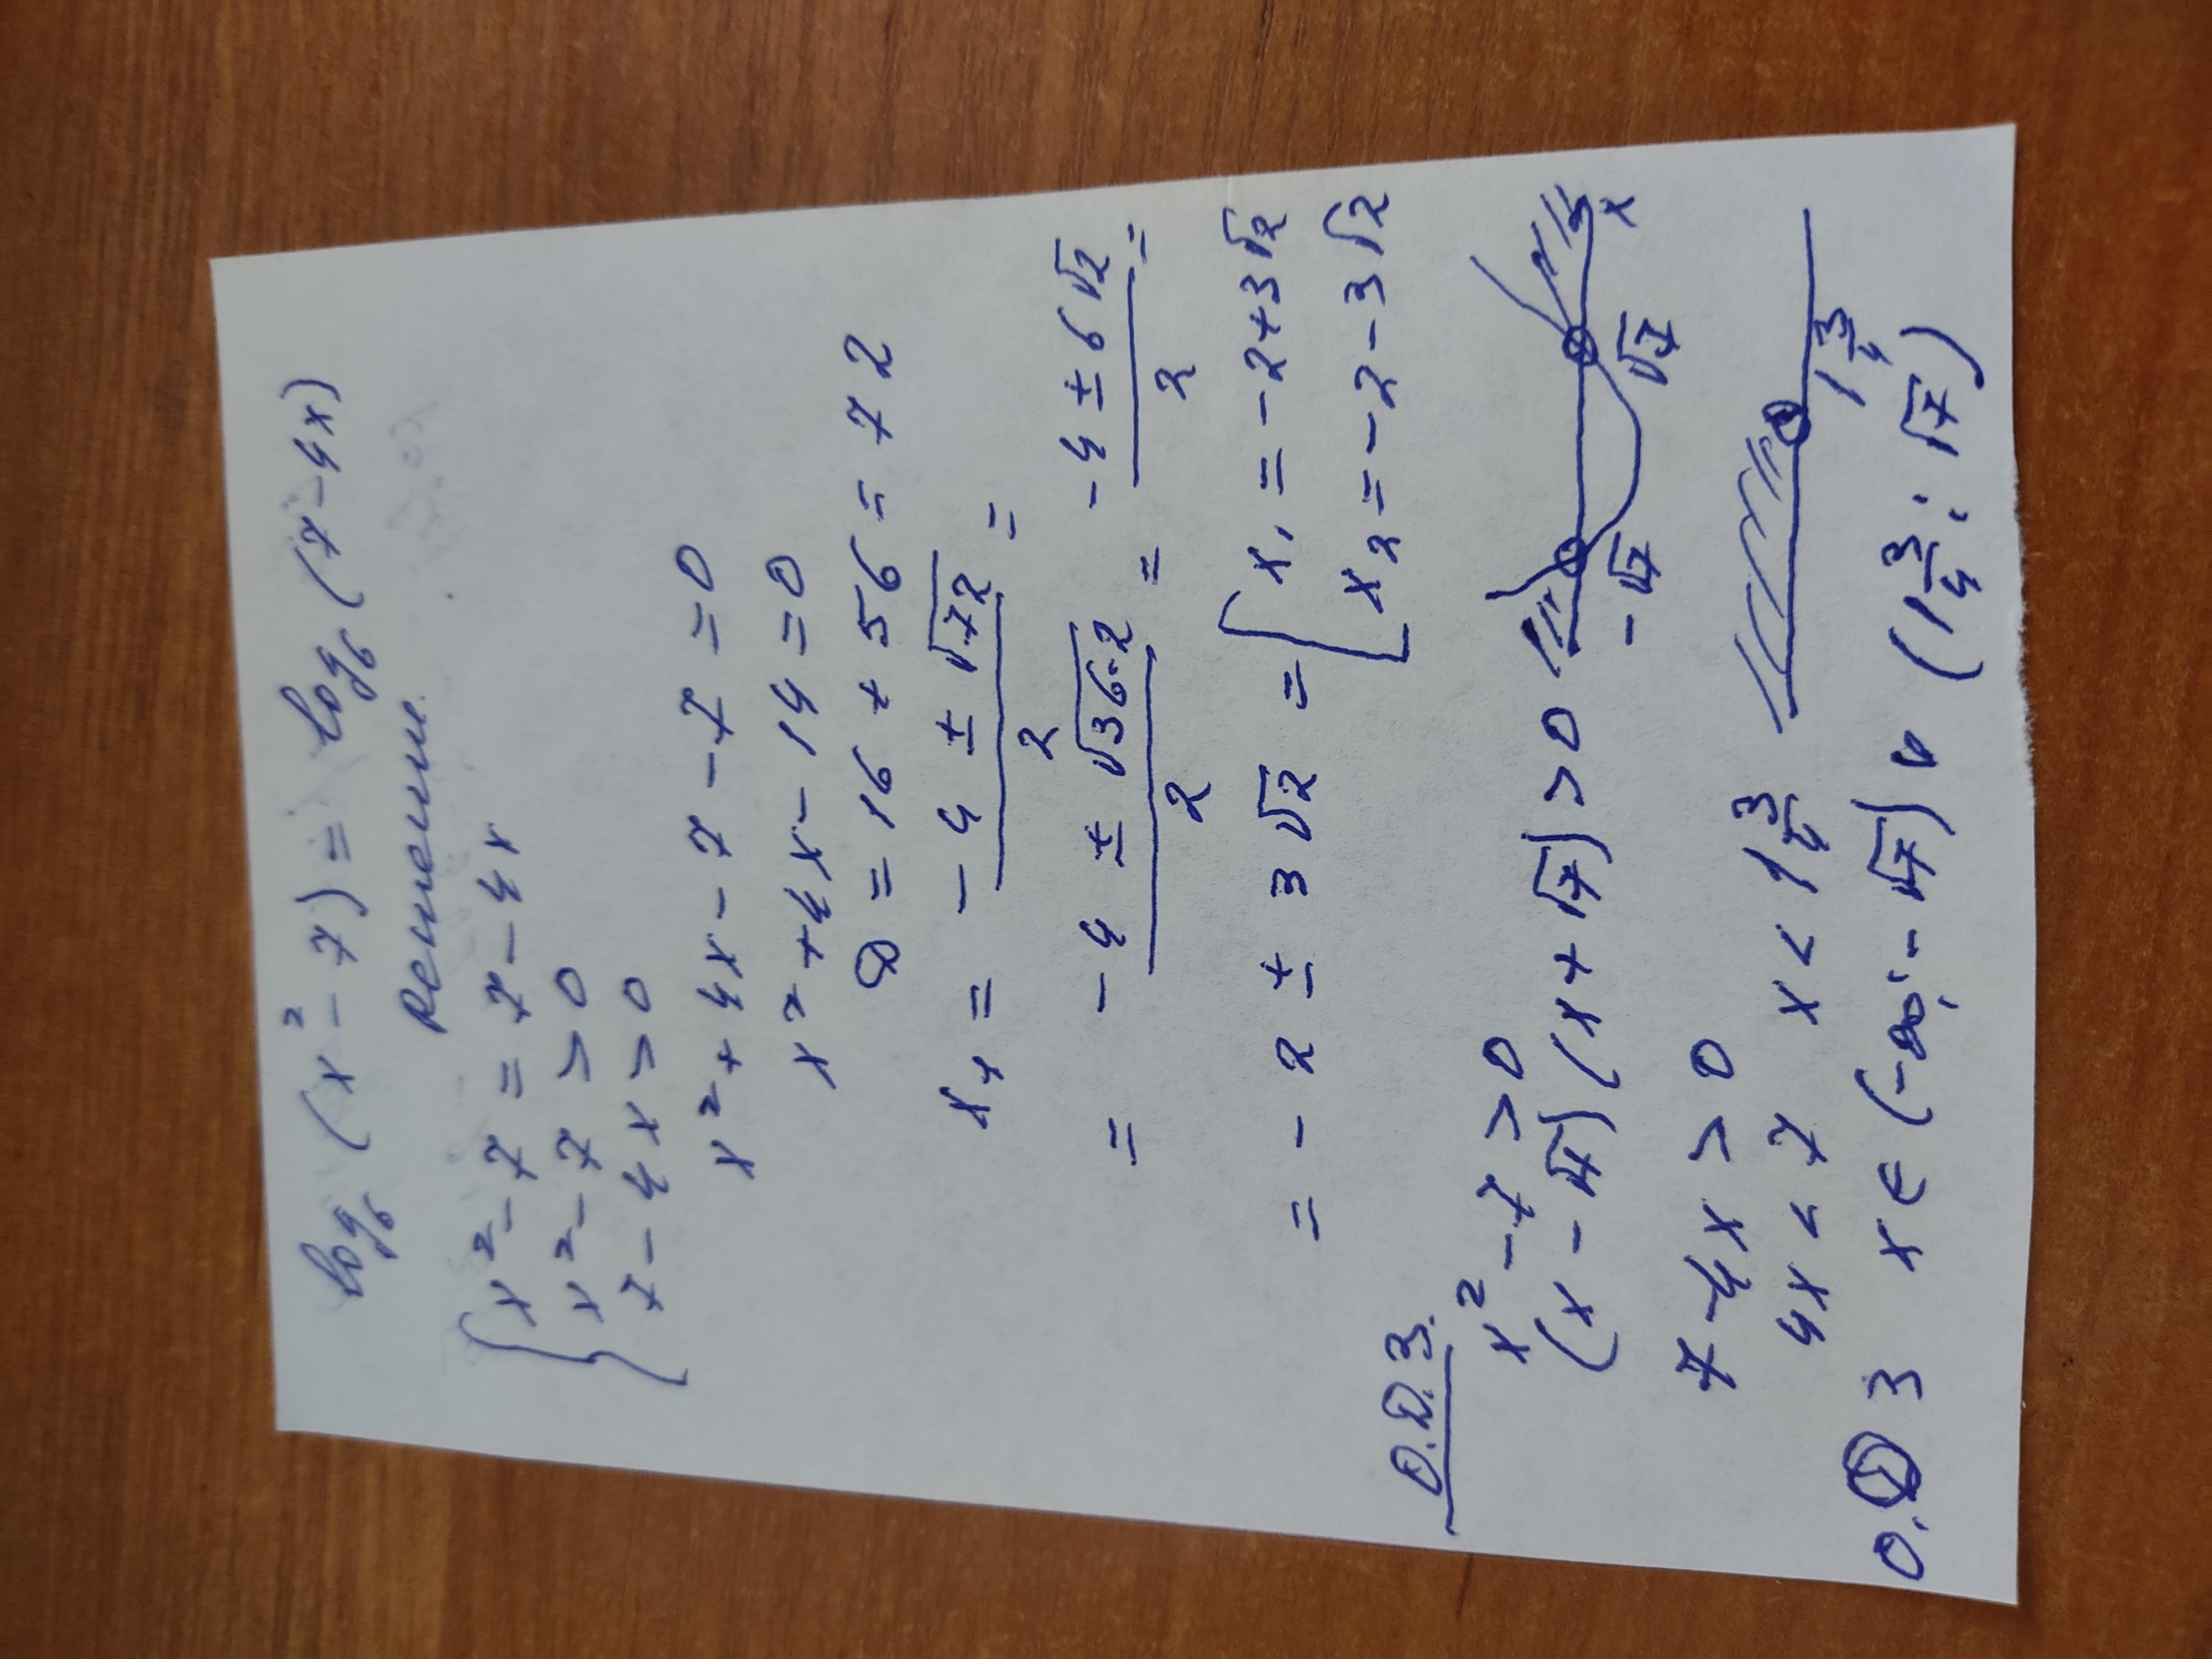 log₆ (x² - 7) = log₆ (7 - 4x)
Решение.
{ x² - 7 = 7 - 4x
x² - 7 > 0
7 - 4x > 0
x² + 4x - 7 - 7 = 0
x² + 4x - 14 = 0
D = 16 + 56 = 72
x₁ = (-4 ± √72)/2 =
= (-4 ± √(36·2))/2 = (-4 ± 6√2)/2 =
= -2 ± 3√2 = [ x₁ = -2 + 3√2
x₂ = -2 - 3√2
О.Д.З.
x² - 7 > 0
(x - √7)(x + √7) > 0 -√7 √7 x
7 - 4x > 0
4x < 7 x < 1 3/4 1 3/4
О.Д З x ∈ (-∞; -√7) ∪ (1 3/4; √7)